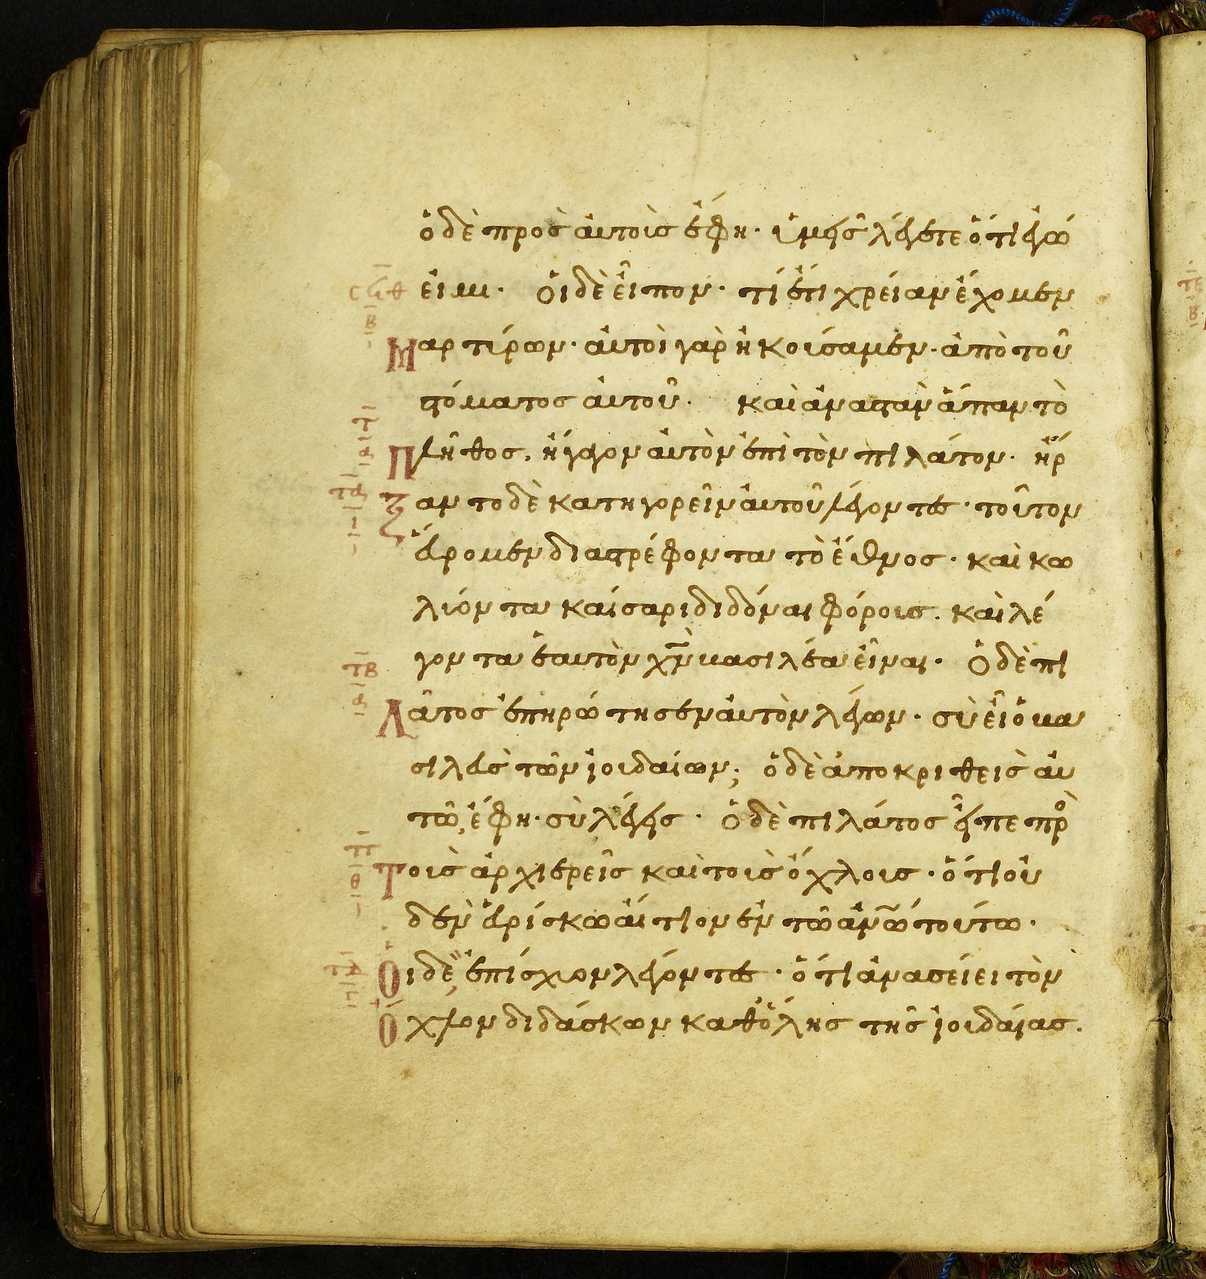 ὁ δὲ πρὸς αὐτοὺς ἔφη· ὑμεῖς λέγετε ὅτι ἐγώ
εἰμι· οἱ δὲ εἶπον· τί ἔτι χρείαν ἔχομεν
μαρτύρων· αὐτοὶ γὰρ ἠκούσαμεν· ἀπὸ τοῦ
στόματος αὐτοῦ· καὶ ἀναστὰν ἅπαν τὸ
πλῆθος, ἤγαγον αὐτὸν ἐπὶ τὸν πιλάτον· ἤρ
ξαντο δὲ κατηγορεῖν αὐτοῦ λέγοντες· τοῦτον
εὕρομεν διαστρέφοντα τὸ ἔθνος· καὶ κω
λύοντα καίσαρι διδόναι φόρους· καὶ λέ
γοντα ἑαυτὸν χ̅ν̅ βασιλέα εἶναι· ὁ δὲ πι
λᾶτος ἐπηρώτησεν αὐτὸν λέγων· σὺ εἶ ὁ βα
σιλεὺς τῶν ἰουδαίων; ὁ δὲ ἀποκριθεὶς αὐ
τῶ, ἔφη· σὺ λέγεις· ὁ δὲ πιλάτος εἶπε πρὸ
τοὺς ἀρχιερεῖς καὶ τοὺς ὄχλους· ὅτι οὐ
δὲν εὑρίσκω αἴτιον ἐν τῶ ἀν̅ω̅ τούτω·
οἱ δὲ ἐπίσχυον λέγοντες· ὅτι ἀνασείει τὸν
ὄχλον διδάσκων καθ' ὅλης τῆς ἰουδαίας.